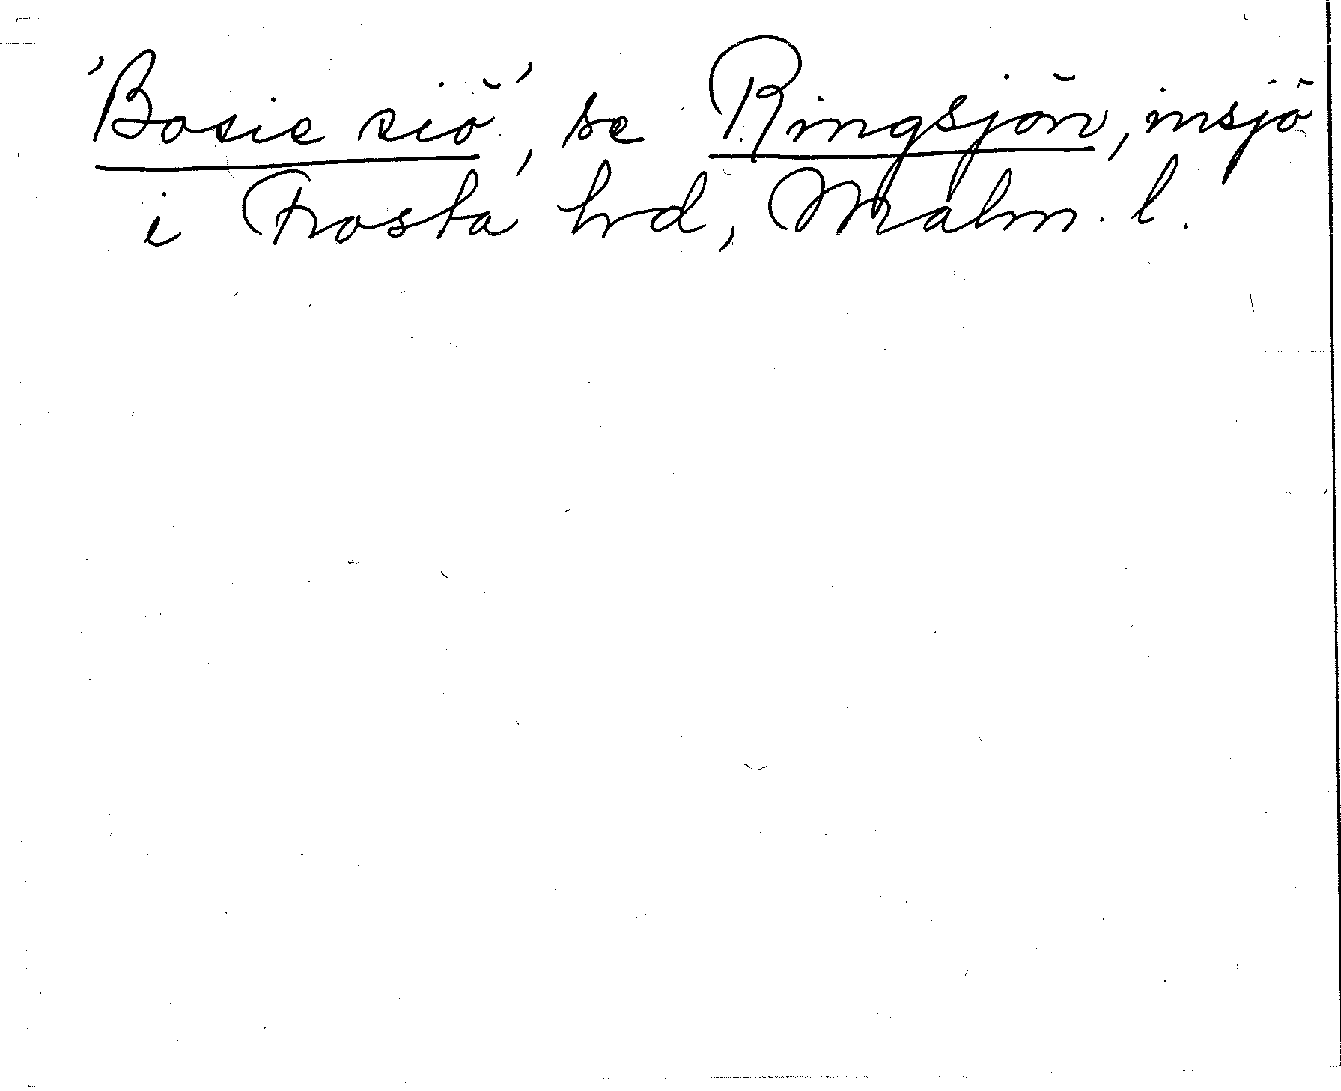 'Bosie siö', se Ringsjön, insjö
i Frosta hrd, Malm. l.